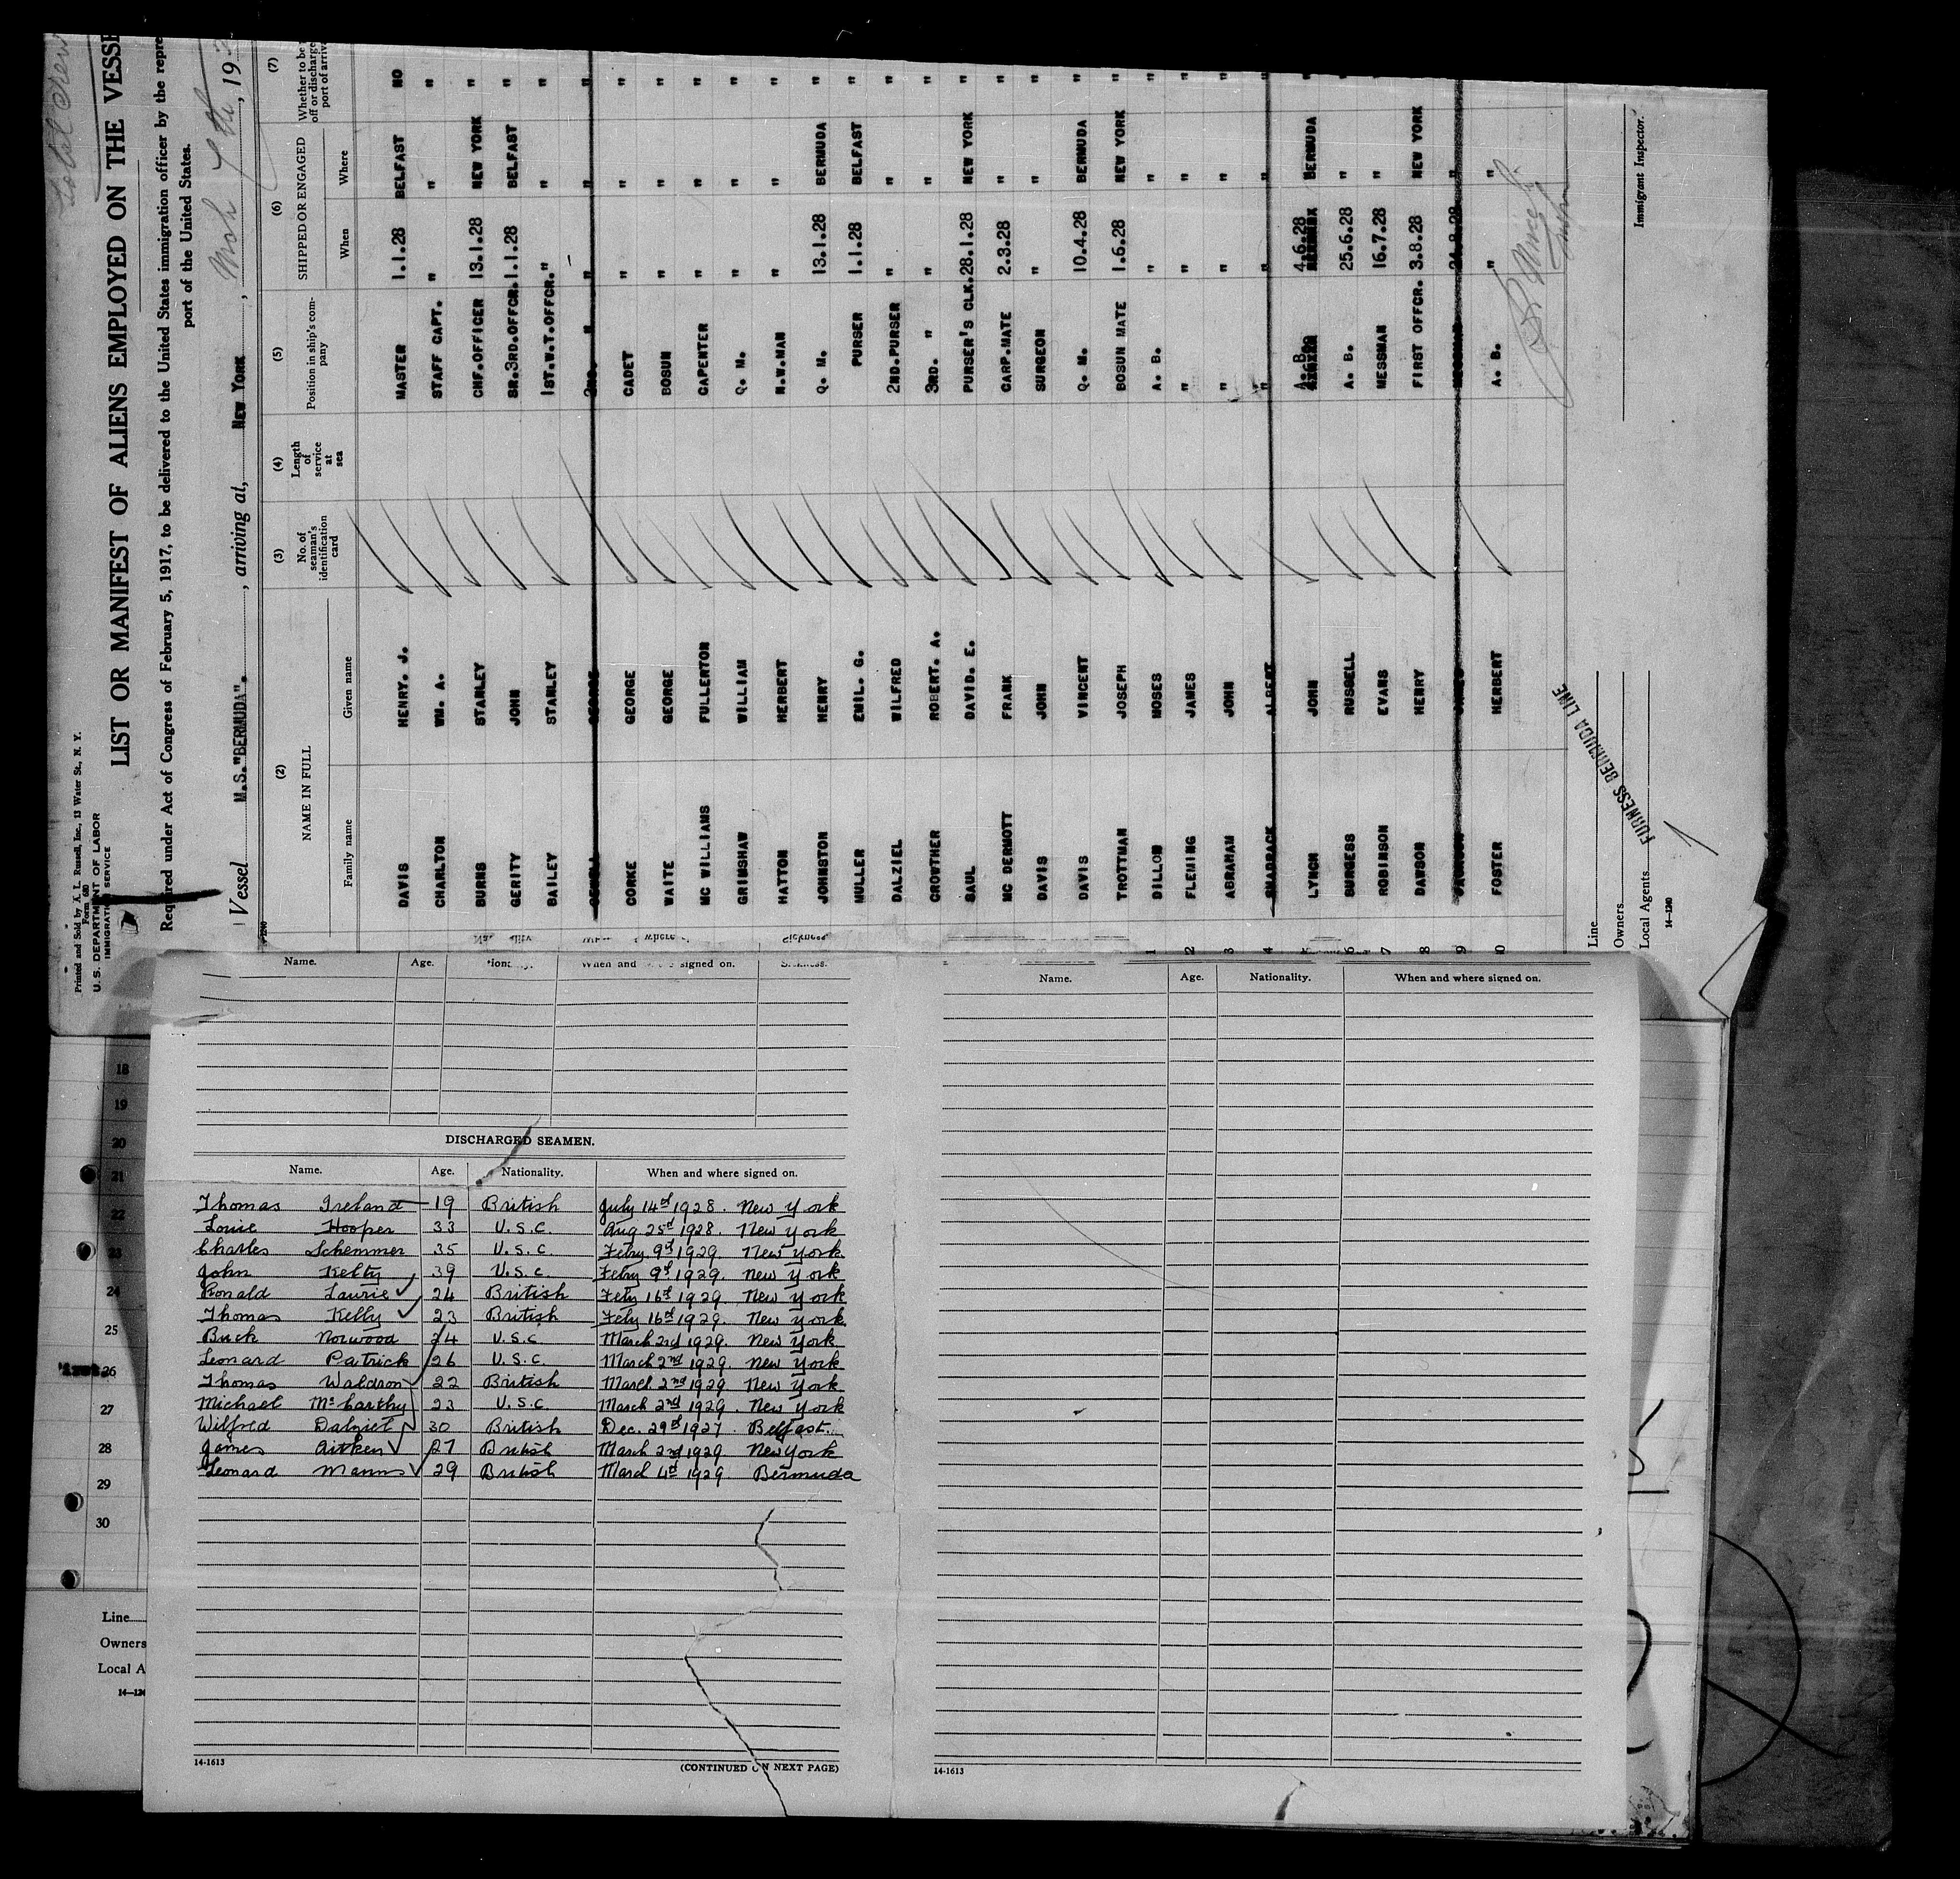 Total Crew
Printed and Sold by A. L. Russell, Inc., 13 Water St., N. Y.
Form 680
U. S. DEPARTMENT OF LABOR
IMMIGRATION SERVICE
LIST OR MANIFEST OF ALIENS EMPLOYED ON THE VESSE
Required under Act of Congress of February 5, 1917, to be delivered to the United States immigration officer by the repre
port of the United States.
Vessel M.S."BERMUDA". , arriving at, NEW YORK , Mch 7th , 19
(2) (3) (4) (5) (6) (7)
NAME IN FULL No. of seaman's identification card Length of service at sea Position in ship's company SHIPPED OR ENGAGED Whether to be off or discharge port of arriva
Family name Given name When Where
DAVIS HENRY. J. MASTER 1.1.28 BELFAST NO
CHARLTON WM. A. STAFF CAPT. " " "
BURNS STANLEY CHF.OFFICER 13.1.28 NEW YORK "
GERITY JOHN SR.3RD.OFFCR. 1.1.28 BELFAST "
BAILEY STANLEY 1ST.W.T.OFFCR. " " "
GEORGE 2ND. " " " "
CORKE GEORGE CADET " " "
WAITE GEORGE BOSUN " " "
MC WILLIAMS FULLERTON CAPENTER " " "
GRIMSHAW WILLIAM Q. M. " " "
HATTON HERBERT N.W.MAN " " "
JOHNSTON HENRY Q. M. 13.1.28 BERMUDA "
MULLER EMIL. G. PURSER 1.1.28 BELFAST "
DALZIEL WILFRED 2ND.PURSER " " "
CROWTHER ROBERT. A. 3RD. " " " "
SAUL DAVID. E. PURSER'S CLK. 28.1.28 NEW YORK "
MC DERMOTT FRANK CARP.MATE 2.3.28 " "
DAVIS JOHN SURGEON " " "
DAVIS VINCENT Q. M. 10.4.28 BERMUDA "
TROTTMAN JOSEPH BOSUN MATE 1.6.28 NEW YORK "
1 DILLON MOSES A. B. " " "
2 FLEMING JAMES " " " "
3 ABRAHAM JOHN " " " "
4 SHADRACK ALBERT " " " "
5 LYNCH JOHN A. B. 4.6.28 BERMUDA "
6 BURGESS RUSSELL A. B. 25.6.28 " "
7 ROBINSON EVANS MESSMAN 16.7.28 " "
8 DAWSON HENRY FIRST OFFCR. 3.8.28 NEW YORK
9 JAMES MESSMAN 24.8.28 "
0 FOSTER HERBERT A. B. " "
Line
Owners
Local Agents FURNESS BERMUDA LINE
14—1240
Immigrant Inspector.
Name. Age. When and where signed on. Sickness.
DISCHARGED SEAMEN.
Name. Age. Nationality. When and where signed on.
Thomas Ireland 19 British July 14th 1928. New York
Louie Hooper 33 U.S.C. Aug 25th 1928. New York
Charles Schemmer 35 U.S.C. Febry. 9th 1929. New York.
John Kelty 39 U.S.C. Febry 9th 1929. New York
Ronald Laurie 24 British Feby 16th 1929. New York
Thomas Kelly 23 British Feby 16th 1929. New York.
Buck Norwood 24 U.S.C March 2nd 1929. New York
Leonard Patrick 26 U.S.C. March 2nd 1929. New York
Thomas Waldron 22 British March 2nd 1929 New York
Michael McCarthy 23 U.S.C. March 2nd 1929. New York
Wilfred Dalziel 30 British Dec. 29th 1927. Belfast.
James Aitken 27 British March 2nd 1929. New York
Leonard Manns 29 British March 4th 1929. Bermuda
14-1613
(CONTINUED ON NEXT PAGE)
Name. Age. Nationality. When and where signed on.
14-1613
18
19
20
21
22
23
24
25
26
27
28
29
30
Line
Owners
Local A